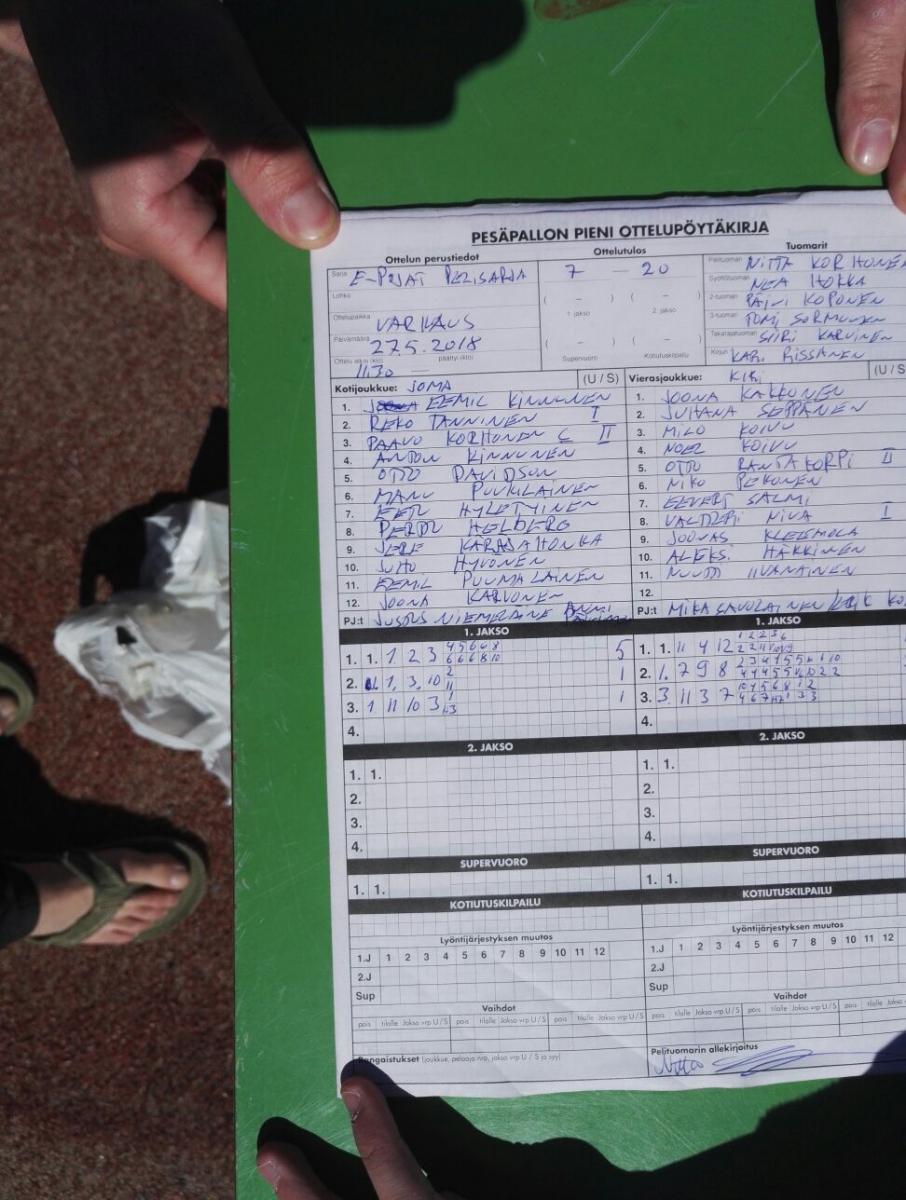 PESÄPALLON PIENI OTTELUPÖYTÄKIRJA
Ottelun perustiedot
Sarja E-POJAT PELISARJA
Lohko
Ottelupaikka VARKAUS
Päivämäärä 27.5.2018
Ottelu alkoi (klo) 11.30 päättyi (klo)
Ottelutulos
7 — 20
( – ) ( – )
1. jakso 2. jakso
( – ) ( – )
Supervuoro Kotiutuskilpailu
Tuomarit
Pelituomari KORHONEN
Syöttötuomari NEA HOKKA
2-tuomari PÄIVI KOPONEN
3-tuomari TOMI SORMUNEN
Takarajatuomari SIIRI KARVINEN
Kirjuri KARI RISSANEN
Kotijoukkue: JOMA (U / S)
1. EEMIL KINNUNEN
2. REKO TANNINEN I
3. PAAVO KORHONEN C II
4. ANTON KINNUNEN
5. OTTO DAVIDSON
6. MANU PUUKILAINEN
7. EELI HYLETYINEN
8. HELBERG
9. JERE KARAJAHONKA
10. JUHO HYVÖNEN
11. EEMIL PUUMALAINEN
12. JOONA KARVONEN
PJ:t JUSTUS
Vierasjoukkue: KIRI (U / S
1. JOONA KAKKONEN
2. JUHANA SEPPÄNEN
3. MILO KOIVU
4. NOEL KOIVU
5. OTTO RANTAKORPI II
6. NIKO PEKONEN
7. EEVERT SALMI
8. VALTTERI NIVA I
9. JOONAS KLEEMOLA
10. ALEKSI HÄKKINEN
11. NUUTTI IIVANAINEN
12.
PJ:t MIKA SAVOLAINEN
1. JAKSO
1. 1. 1 2 3 5
2. 1. 3. 10 1
3. 1 11 10 3 1
4.
1. JAKSO
1. 1. 11 4 12
2. 1. 7 9 8
3. 3. 11 3 7
4.
2. JAKSO
1. 1.
2.
3.
4.
2. JAKSO
1. 1.
2.
3.
4.
SUPERVUORO
1. 1.
SUPERVUORO
1. 1.
KOTIUTUSKILPAILU
KOTIUTUSKILPAILU
Lyöntijärjestyksen muutos
1.J 1 2 3 4 5 6 7 8 9 10 11 12
2.J
Sup
Lyöntijärjestyksen muutos
1.J 1 2 3 4 5 6 7 8 9 10 11 12
2.J
Sup
Vaihdot
pois tilalle Jakso vrp U / S pois tilalle Jakso vrp U / S pois tilalle Jakso vrp U / S
Vaihdot
pois tilalle Jakso vrp U / S pois tilalle Jakso vrp U / S pois tilalle Jakso
Rangaistukset (joukkue, pelaaja nro, jakso vrp U / S ja syy)
Pelituomarin allekirjoitus